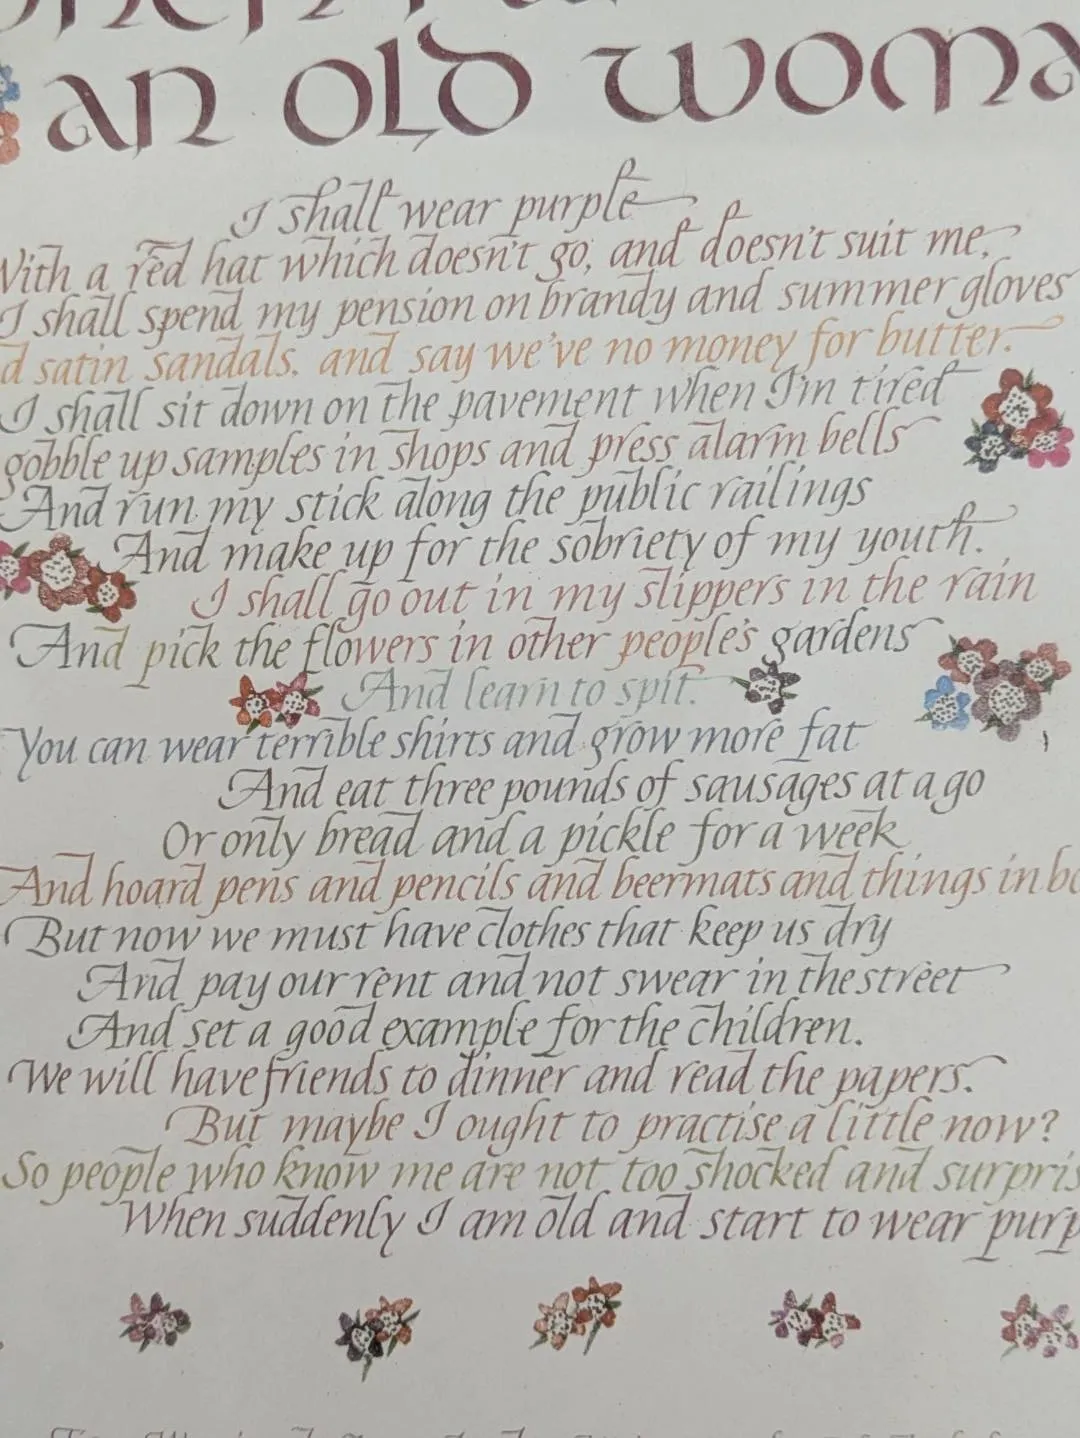 AN OLD
I shall wear purple
With a red hat which doesn't go, and doesn't suit me,
I shall spend my pension on brandy and summer gloves
satin sandals, and say we've no money for butter.
I shall sit down on the pavement when I'm tired
gobble up samples in shops and press alarm bells
And run my stick along the public railings
And make up for the sobriety of my youth.
I shall go out in my slippers in the rain
And pick the flowers in other people's gardens
And learn to spit.
You can wear terrible shirts and grow more fat
And eat three pounds of sausages at a go
Or only bread and a pickle for a week
And hoard pens and pencils and beermats and things in
But now we must have clothes that keep us dry
And pay our rent and not swear in the street
And set a good example for the children.
We will have friends to dinner and read the papers.
But maybe I ought to practise a little now?
So people who know me are not too shocked and
When suddenly I am old and start to wear